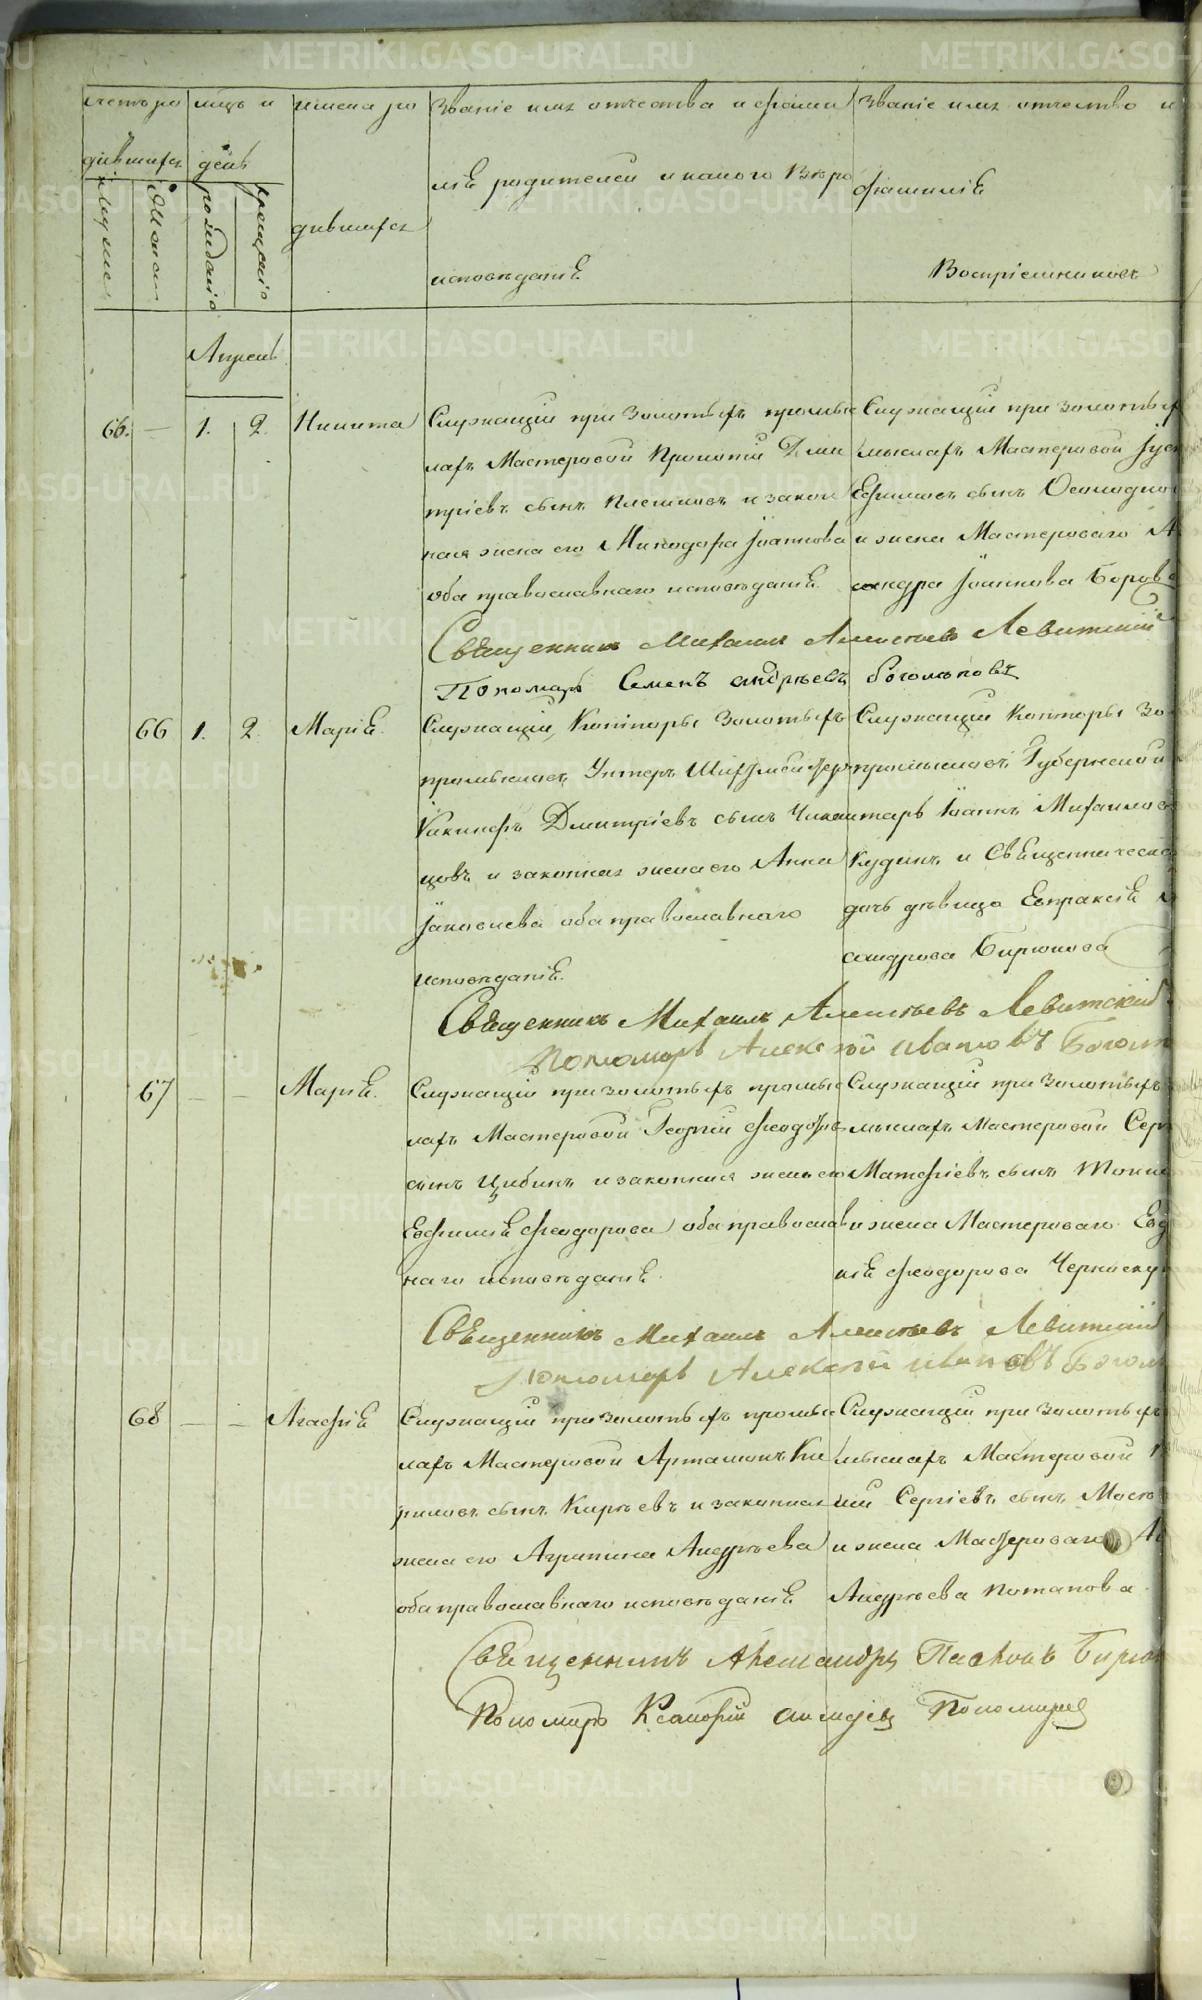 METRIKI.GASO-URAL.RU
счетъ ро
дившихся
мужеск
женск
мцъ и
день
рожданія
крещенія
имена ро
дившихся
Званіе имя отчество и фами
ліѣ родителей и какого Вѣро
исповѣданіѣ
Званіе имя отчество и
фамиліѣ
Воспріемниковъ
Апрель
66. — 1. 2. Никита
Служащій при Золотыхъ промыс
лахъ Мастеровой Прокопій Дми
тріевъ сынъ Плешковъ и закон
ная жена его Минодора Іоаннова
оба православнаго исповѣданіѣ
Служащій при золотых
мыслахъ Мастеровой
Ефимовъ сынъ
и жена Мастероваго
сандра Іоаннова
Священникъ Михаилъ Алексѣевъ Левитскій
Пономарь Семенъ андрѣевъ боголѣповъ
66 1. 2. Маріѣ.
Служащій Конторы Золотыхъ
промысловъ Унтеръ Шихтмейстеръ
Іакинфъ Дмитріевъ сынъ
цовъ и законная жена его Анна
Іаковлева оба православнаго
исповѣданіѣ.
Служащій Конторы Зо
промысловъ Губернской
Іоаннъ Михаиловъ
Кудинъ и Священническа
дочь дѣвица Евпраксіѣ
сандрова Бирюкова
Священникъ Михаилъ Алексѣевъ Левитскій
Пономарь Алексѣй Ивановъ Боголѣ
67 — — Маріѣ.
Служащій при золотыхъ промыс
лахъ Мастеровой Георгій Феодоровъ
сынъ Цибинъ и законная жена его
Евфиміѣ Феодорова оба православ
наго исповѣданіѣ.
Служащій при Золотыхъ
мыслахъ Мастеровой Серг
Матфіевъ сынъ
и жена Мастероваго Евд
кіѣ Феодорова
Священникъ Михаилъ Алексѣевъ Левитскій
Пономарь Алексѣй Ивановъ Боголѣ
68 — — Агафіѣ
Служащій при Золотыхъ промыс
лахъ Мастеровой Артамонъ Ки
риловъ сынъ Кирѣевъ и законная
жена его Агрипина Андрѣева
оба православнаго исповѣданіѣ
Служащій при Золотыхъ
мыслахъ Мастеровой
Сергіевъ сынъ
и жена Мастероваго
Андрѣева Потапова.
Священникъ Александръ Павловъ Бирюк
Пономарь